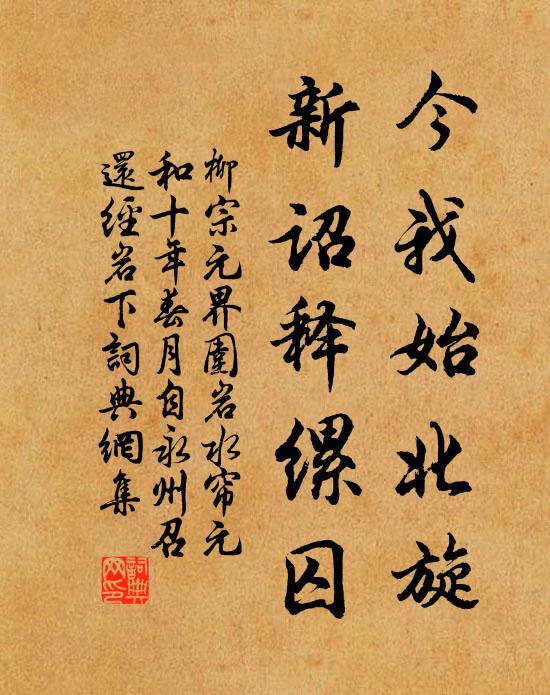 今我始北旋
新诏释缧囚
柳宗元界圍岩水帘元
和十年春月自永州召
還經岩下詞典網集
詞典网印